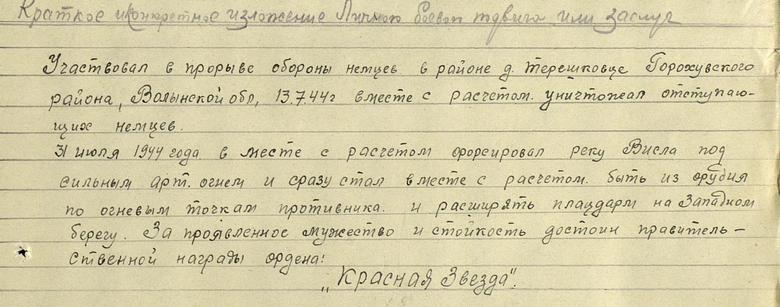 Краткое и конкретное изложение Личного боевого подвига или заслуг
Участвовал в прорыве обороны немцев в районе д. Терешковце Горохувского
района, Волынской обл, 13.7.44г вместе с расчетом уничтожал отступаю-
щих немцев.
31 июля 1944 года в месте с расчетом форсировал реку Висла под
сильным арт. огнем и сразу стал вместе с расчетом. быть из орудия
по огневым точкам противника. и расширять плацдарм на Западном
берегу. За проявленное мужество и стойкость достоин правитель-
ственной награды ордена:
„Красная Звезда".